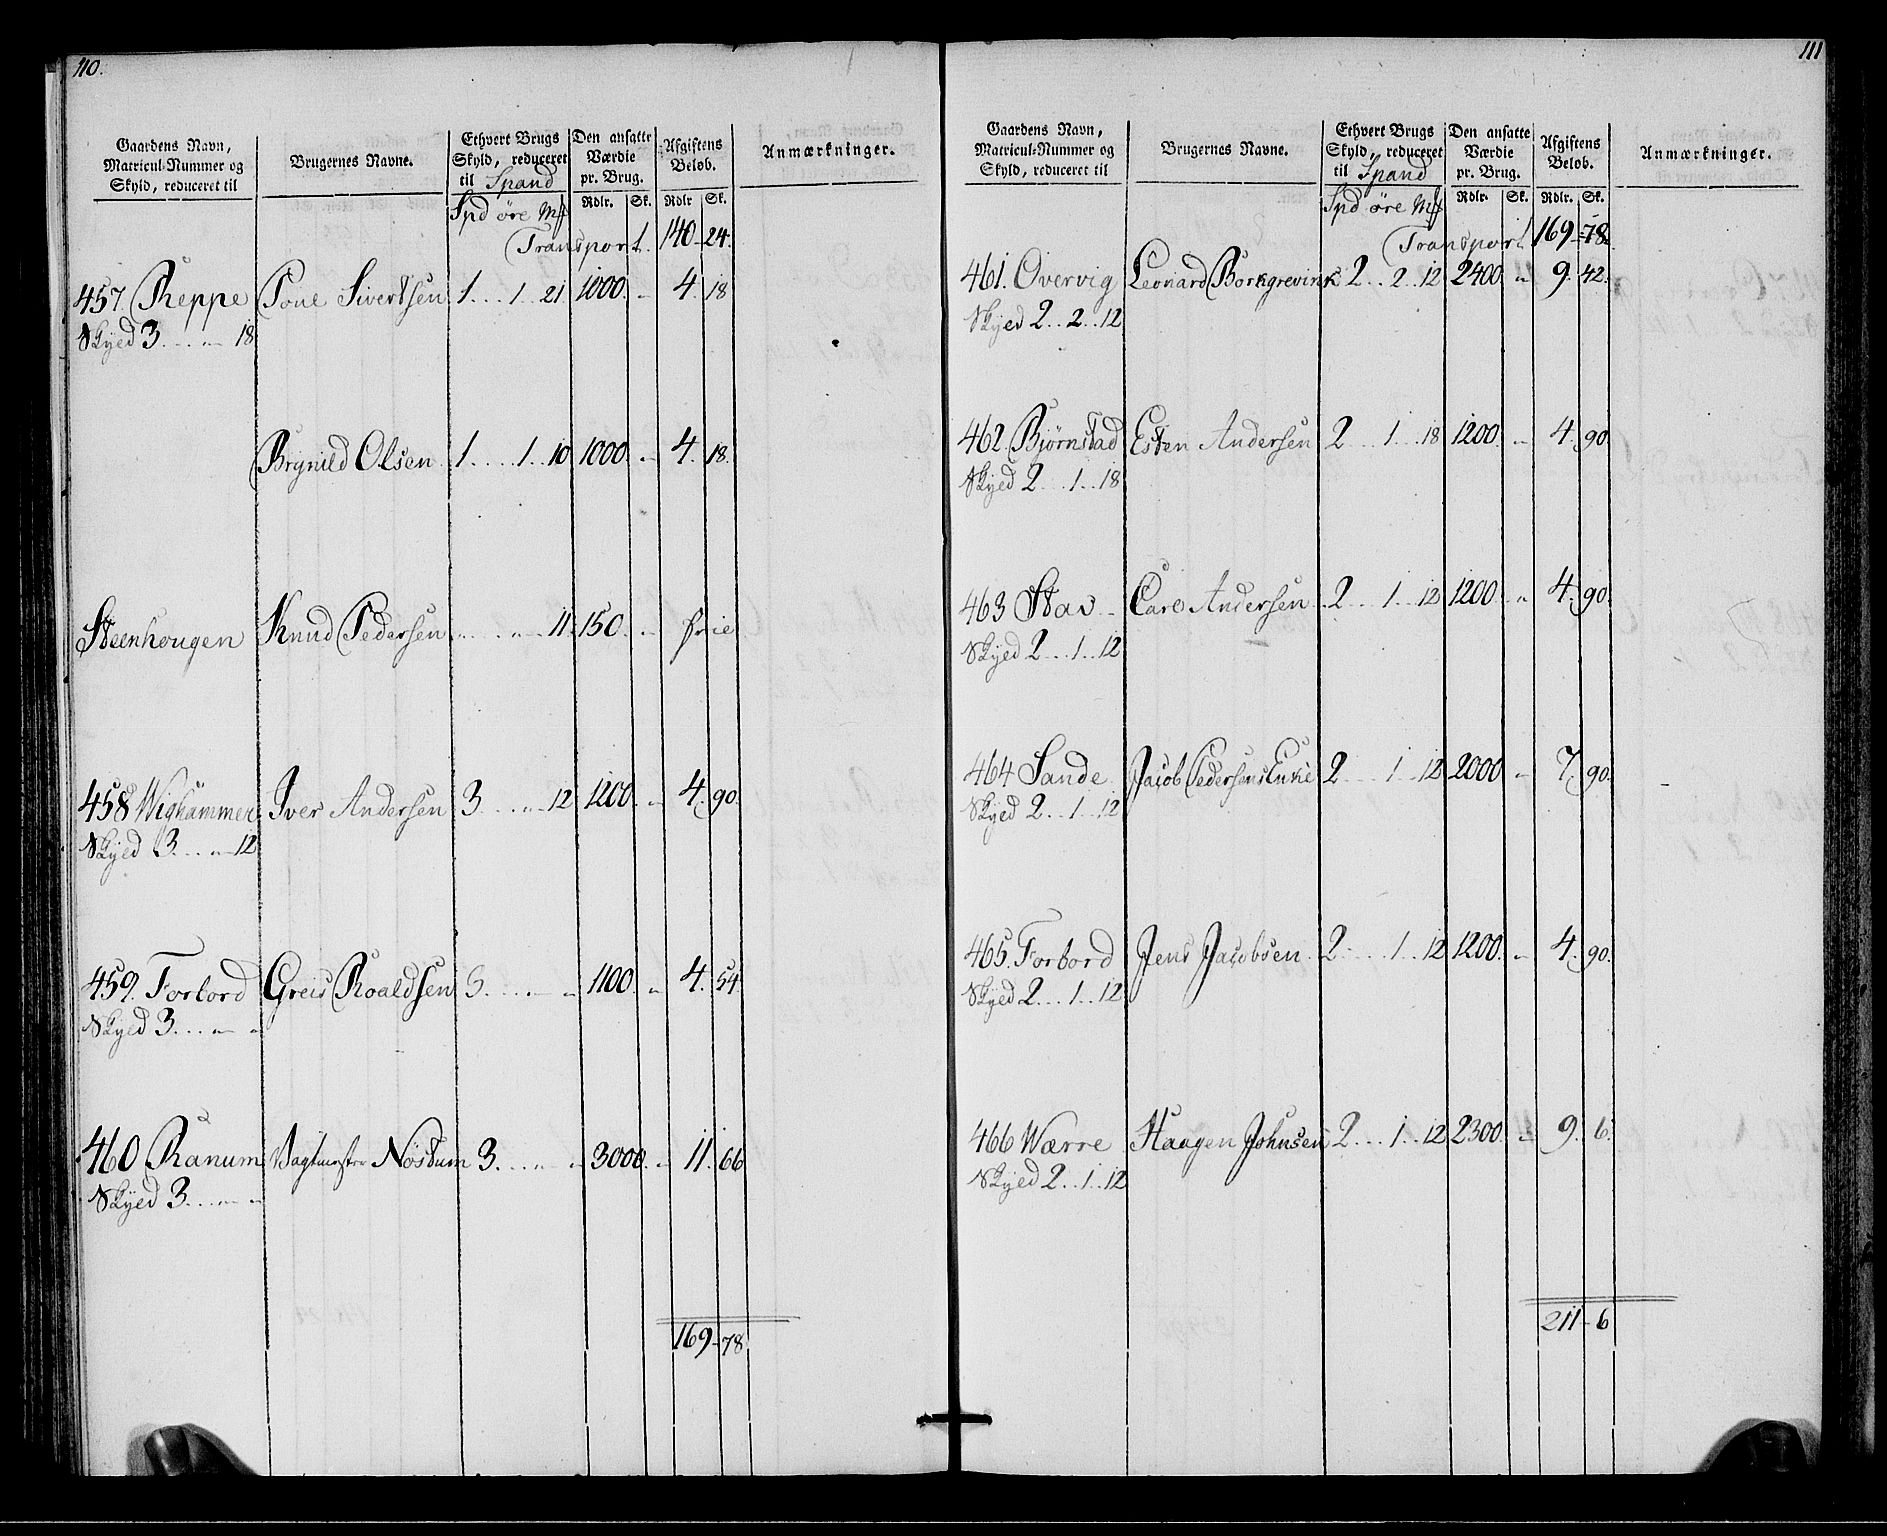 110.
Gaardens Navn, Matricul-Nummer og Skyld, reduceret til | Brugernes Navne. | Ethvert Brugs Skyld, reduceret til Spand | Den ansatte Værdie pr. Brug. | Afgiftens Beløb. | Anmærkninger.
Spd øre Mk | Rdlr. Sk. | Rdlr Sk.
Transport. 140 - 24.
457. Reppe Tone Sivertsen 1...1..21 1000. - 4. 18
Skyld 3.....18
Brynild Olsen. 1.....1..10 1000. - 4. 18.
Steenhougen Knud Pedersen ......11. 150. - frie
458 Wighammer Iver Andersen 3.....12 1200. - 4. 90.
Skyld 3.....12
459. Forbord Greis Roaldsen 3..... 1100. - 4. 54
Skyld 3.....
460 Ranum Vagtmestr Nøstum 3..... 3000. - 11. 66
Skyld 3.....
169 - 78.
111
Gaardens Navn, Matricul-Nummer og Skyld, reduceret til | Brugernes Navne. | Ethvert Brugs Skyld, reduceret til Spand | Den ansatte Værdie pr. Brug. | Afgiftens Beløb. | Anmærkninger.
Spd øre Mk | Rdlr. Sk. | Rdlr. Sk.
Transport 169 - 78.
461. Overvig Leonard Borkgrevink 2..2..12 2400. - 9. 42.
Skyld 2..2..12
462. Bjørnstad Esten Andersen 2...1..18 1200. - 4. 90.
Skyld 2...1..18
463 Stav Carl Andersen 2...1..12 1200. - 4. 90.
Skyld 2...1..12
464 Sande Jacob Pedersens Enke 2....1..12 2000 - 7. 90.
Skyld 2...1..12
465. Forbord Jens Jacobsen. 2....1..12 1200. - 4. 90.
Skyld 2...1..12
466 Wærre Haagen Johnsen 2....1..12 2300. - 9. 6.
Skyld 2..1..12
211 - 6